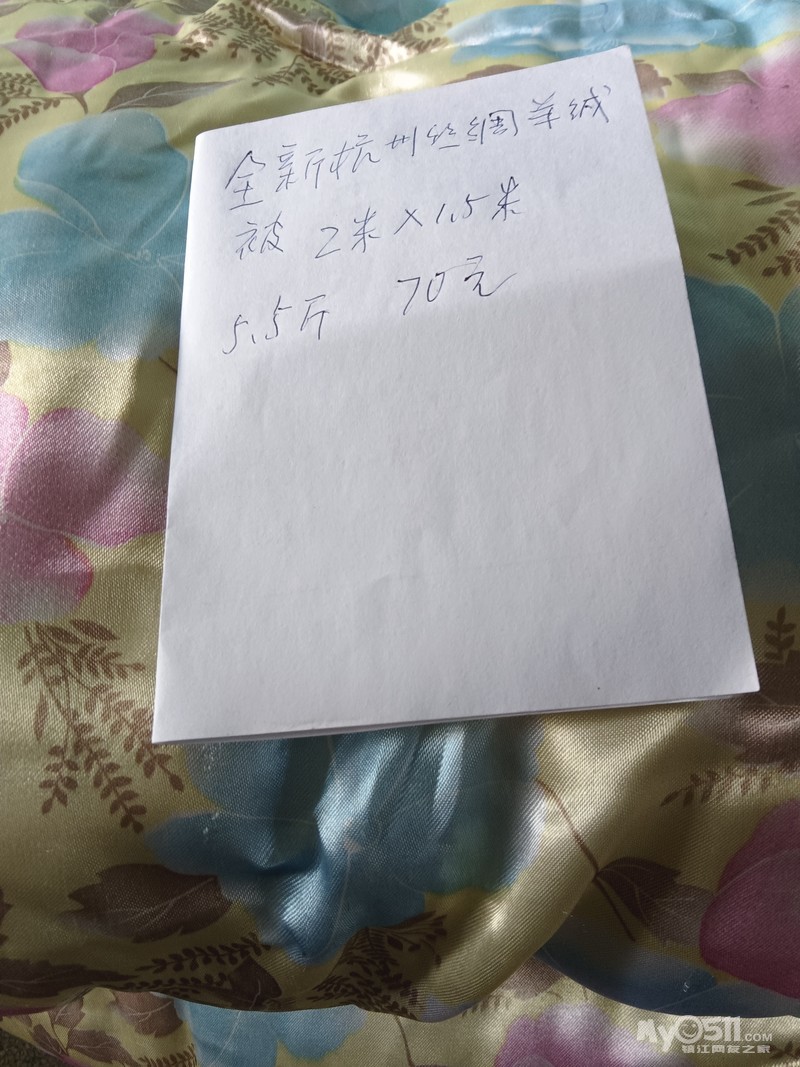 全新杭州丝绸羊绒
被 2米×1.5米
5.5斤 70元
MY0511.COM
镇江网友之家